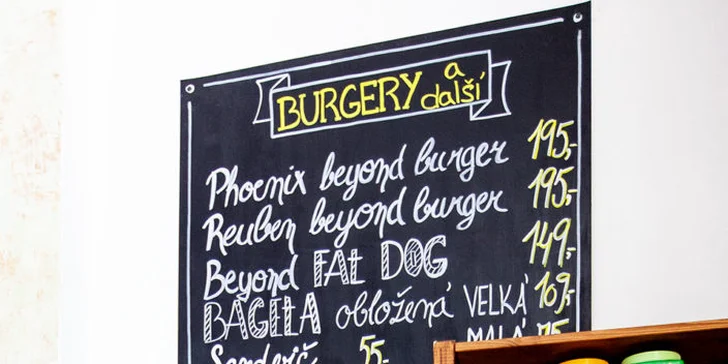 BURGERY a další
Phoenix beyond burger 195,-
Reuben beyond burger 195,-
Beyond FAT DOG 149,-
BAGETA obložená VELKÁ 109,-
MALÁ 75
Sendvič 55,-